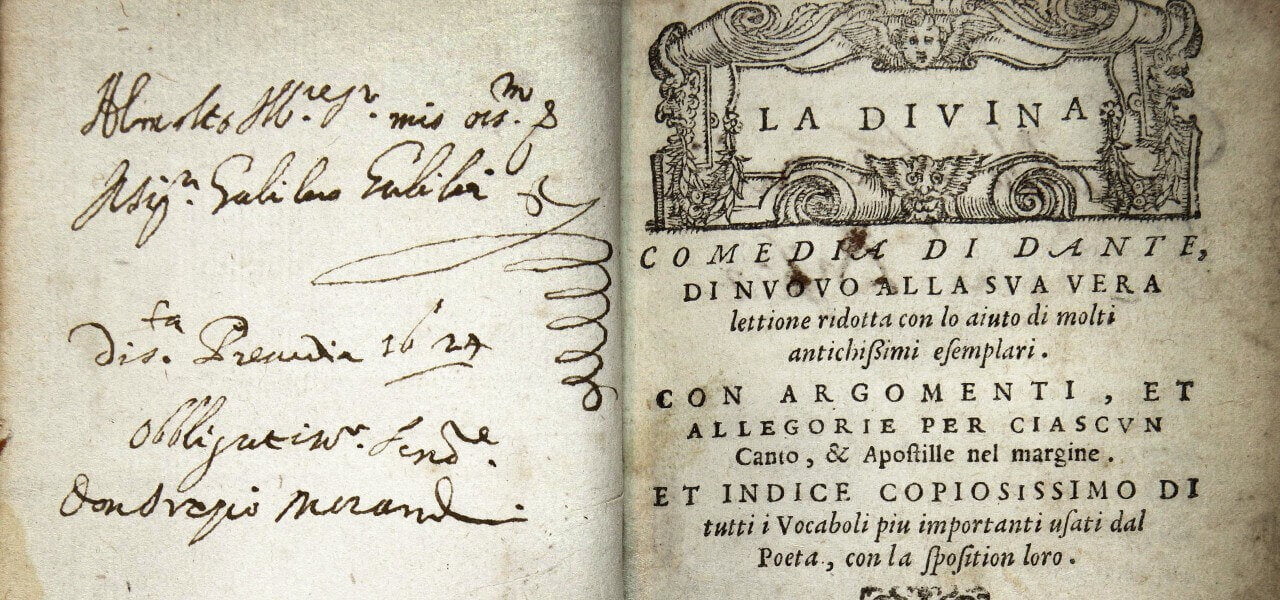 Al molto Ill.re Sr. mio oss.mo
Il sig.r Galileo Galilei
1624
Obbligatiss.o Ser.re
Don Orazio Morandi
LA DIVINA
COMEDIA DI DANTE,
DI NVOVO ALLA SVA VERA
lettione ridotta con lo aiuto di molti
antichißimi eſemplari.
CON ARGOMENTI, ET
ALLEGORIE PER CIASCVN
Canto, & Apoſtille nel margine.
ET INDICE COPIOSISSIMO DI
tutti i Vocaboli piu importanti uſati dal
Poeta, con la ſpoſition loro.